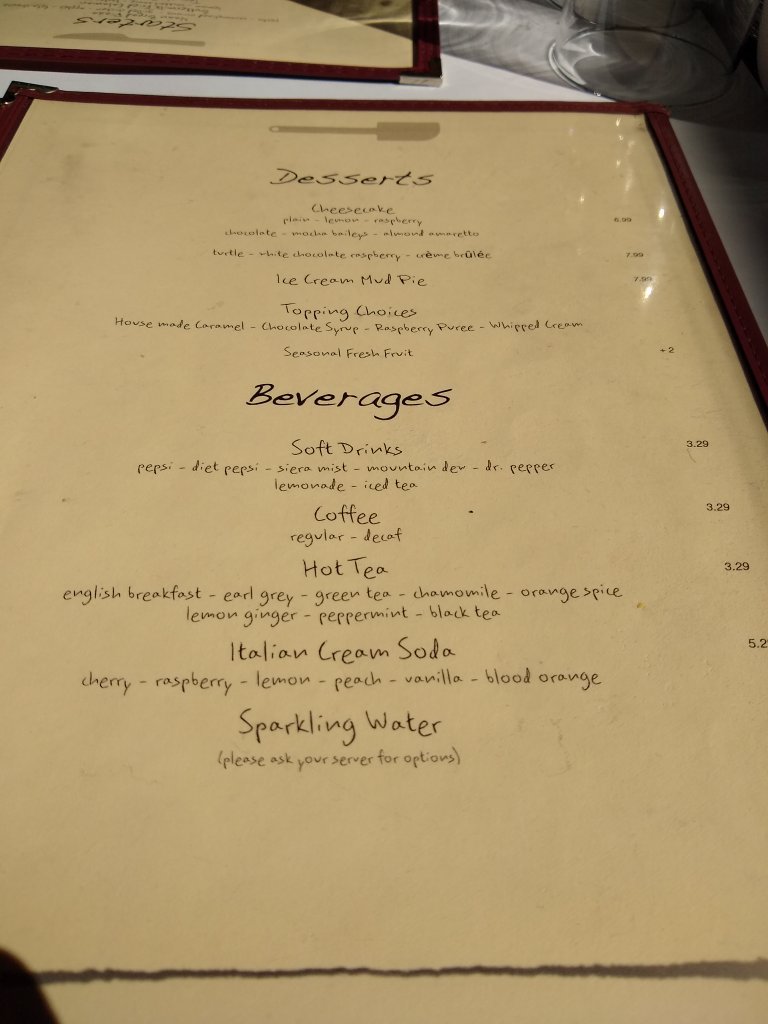 Starters
Desserts
Cheesecake
plain - lemon - raspberry 6.99
chocolate - mocha baileys - almond amaretto
turtle - white chocolate raspberry - crème brûlée 7.99
Ice Cream Mud Pie 7.99
Topping Choices
House made Caramel - Chocolate Syrup - Raspberry Puree - Whipped Cream
Seasonal Fresh Fruit + 2
Beverages
Soft Drinks 3.29
pepsi - diet pepsi - siera mist - mountain dew - dr. pepper
lemonade - iced tea
Coffee 3.29
regular - decaf
Hot Tea 3.29
english breakfast - earl grey - green tea - chamomile - orange spice
lemon ginger - peppermint - black tea
Italian Cream Soda 5.2
cherry - raspberry - lemon - peach - vanilla - blood orange
Sparkling Water
(please ask your server for options)